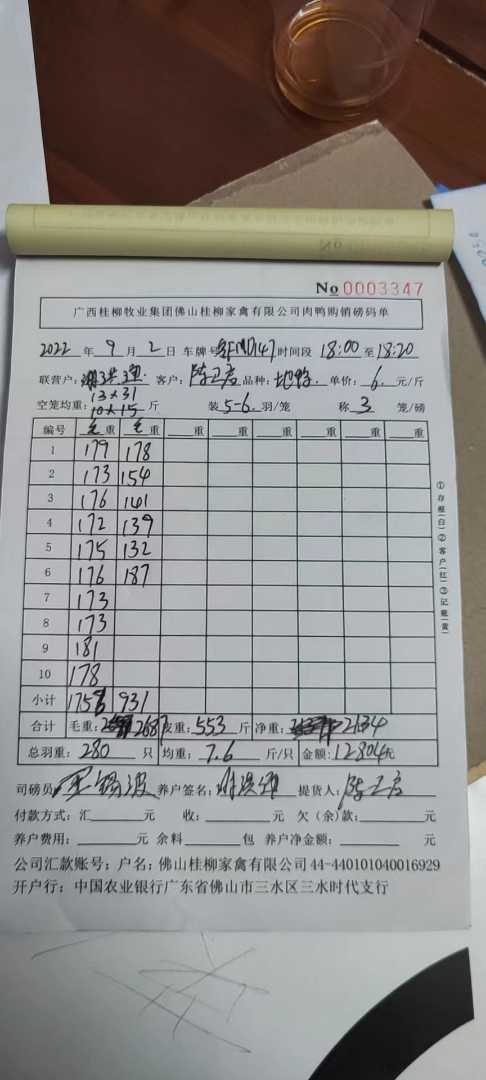 No 0003347
广西桂柳牧业集团佛山桂柳家禽有限公司肉鸭购销磅码单
2022 年 9 月 2 日 车牌号 147 时间段 18:00 至 18:20
联营户: 客户: 陈卫 品种: 单价: 6. 元/斤
13×31
空笼均重: 10×15 斤 装 5-6. 羽/笼 称 3 笼/磅
编号 毛重 毛重 重 重 重 重 重 重
1 179 178
2 173 154
3 176 141
4 172 139
5 175 132
6 176 187
7 173
8 173
9 181
10 178
小计 1756 931
合计 毛重: 2687 皮重: 553 斤 净重: 2134
总羽重: 280 只 均重: 7.6 斤/只 金额: 12804元
司磅员 养户签名: 提货人: 陈卫
付款方式: 汇 元 收: 元 欠(余)款: 元
养户费用: 元 余料 包 养户净金额: 元
公司汇款账号; 户名: 佛山桂柳家禽有限公司 44-440101040016929
开户行: 中国农业银行广东省佛山市三水区三水时代支行
①存根(白)②客户(红)③记账(黄)